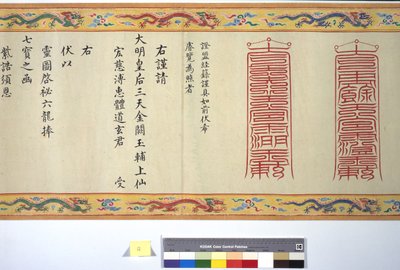 證盟經籙謹具如前伏希
覽為照者
右謹請
大明皇后三天金闕玉輔上仙
宏慈溥惠體道玄君 受
右
伏以
靈圖啓祕六龍捧
七寶之函
紫誥頒恩
KODAK Color Control Patches